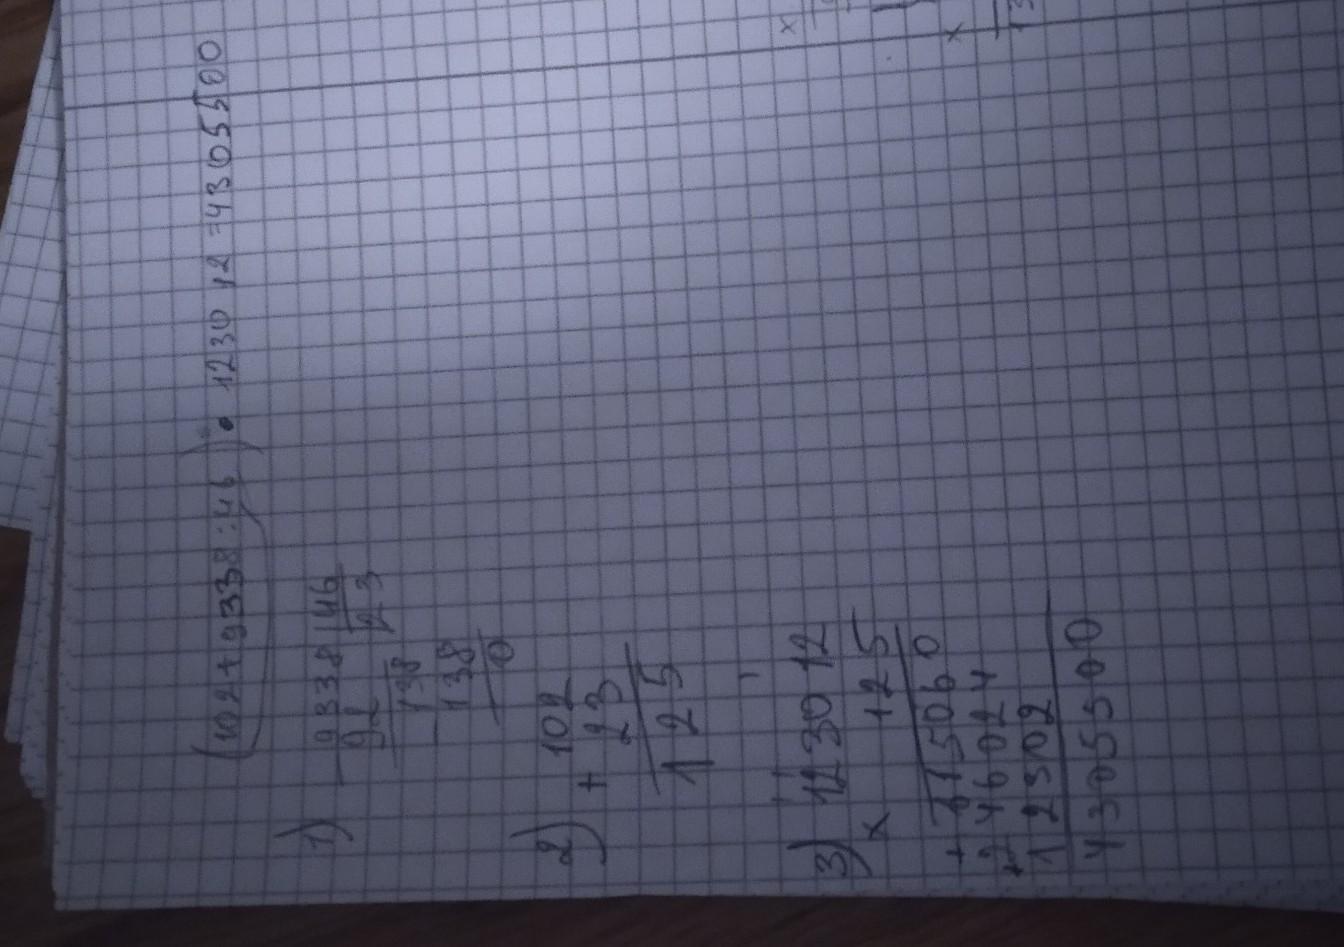 (102+9338:46)•123012=4305500
1) 9338 46
92 23
138
138
0
2) 102
+ 23
125
3) 123012
× 125
+ 615060
+ 246024
12302
4305500
×
×
13